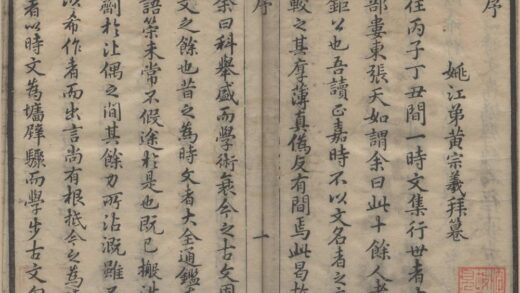 序
姚江弟黃宗羲拜纂
往丙子丁丑間一時文集行世者十
部婁東張天如謂余曰此十餘人者
鉅公也吾讀正嘉時不以文名者之
較之其厚薄真偽反有間焉此曷故
序
一
余曰科舉盛而學術衰今之古文固
文之餘也昔之為時文者大全通鑑
語策未常不假途於是也既已搬涉
劑於比偶之間其餘力所沾溉雖
以希作者而出言尚有根柢今之為
者以時文為墻壁驟而學步古文